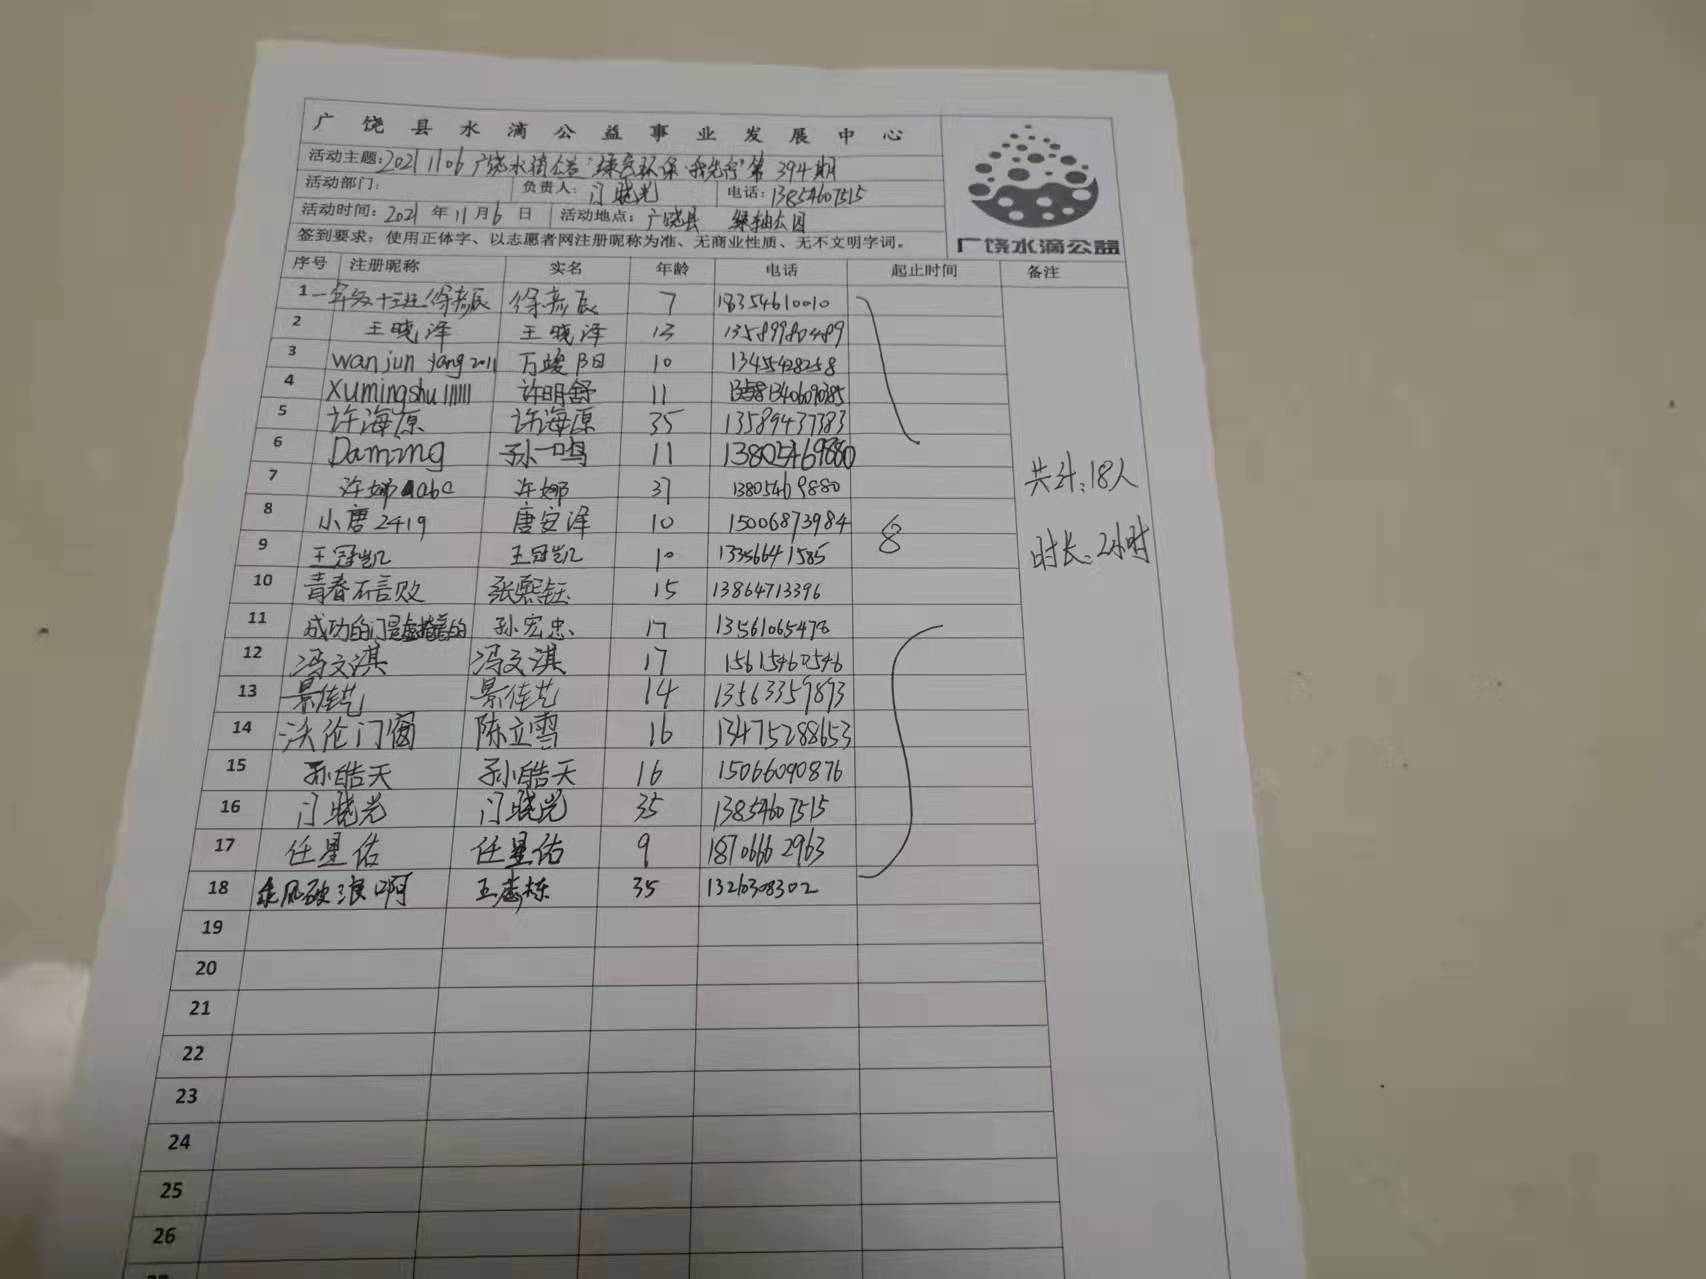 广饶县水滴公益事业发展中心
活动主题:20211106广饶水滴公益"绿色环保·我先行"第394期
活动部门: 负责人: 门晓光 电话:13854607515
活动时间:2021年11月6日 活动地点:广饶县 绿轴公园
签到要求:使用正体字、以志愿者网注册昵称为准、无商业性质、无不文明字词。
广饶水滴公益
序号 注册昵称 实名 年龄 电话 起止时间 备注
1 一年级十班徐彦辰 徐彦辰 7 18354610010
2 王晓泽 王晓泽 13 13589980489
3 wanjunyang2011 万竣阳 10 13455428258
4 xumingshu111111 许明舒 11 13406090385
5 许海原 许海原 35 13589437383
6 Daming 孙一鸣 11 13805469880
7 许娜aabc 许娜 37 13805469880
共计:18人
8 小唐2419 唐安泽 10 15006873984
8
9 王冠凯 王冠凯 10 13356641585
时长:2小时
10 青春不言败 张熙钰 15 13864713396
11 成功的门是虚掩着的 孙宏忠 17 13561065478
12 冯文淇 冯文淇 17 15615460546
13 景佳艺 景佳艺 14 13563359893
14 沃伦门窗 陈立雪 16 13475288653
15 孙皓天 孙皓天 16 15066090876
16 门晓光 门晓光 35 13854607515
17 任星佑 任星佑 9 18706662963
18 乘风破浪啊 王志栋 35 1326308302
19
20
21
22
23
24
25
26